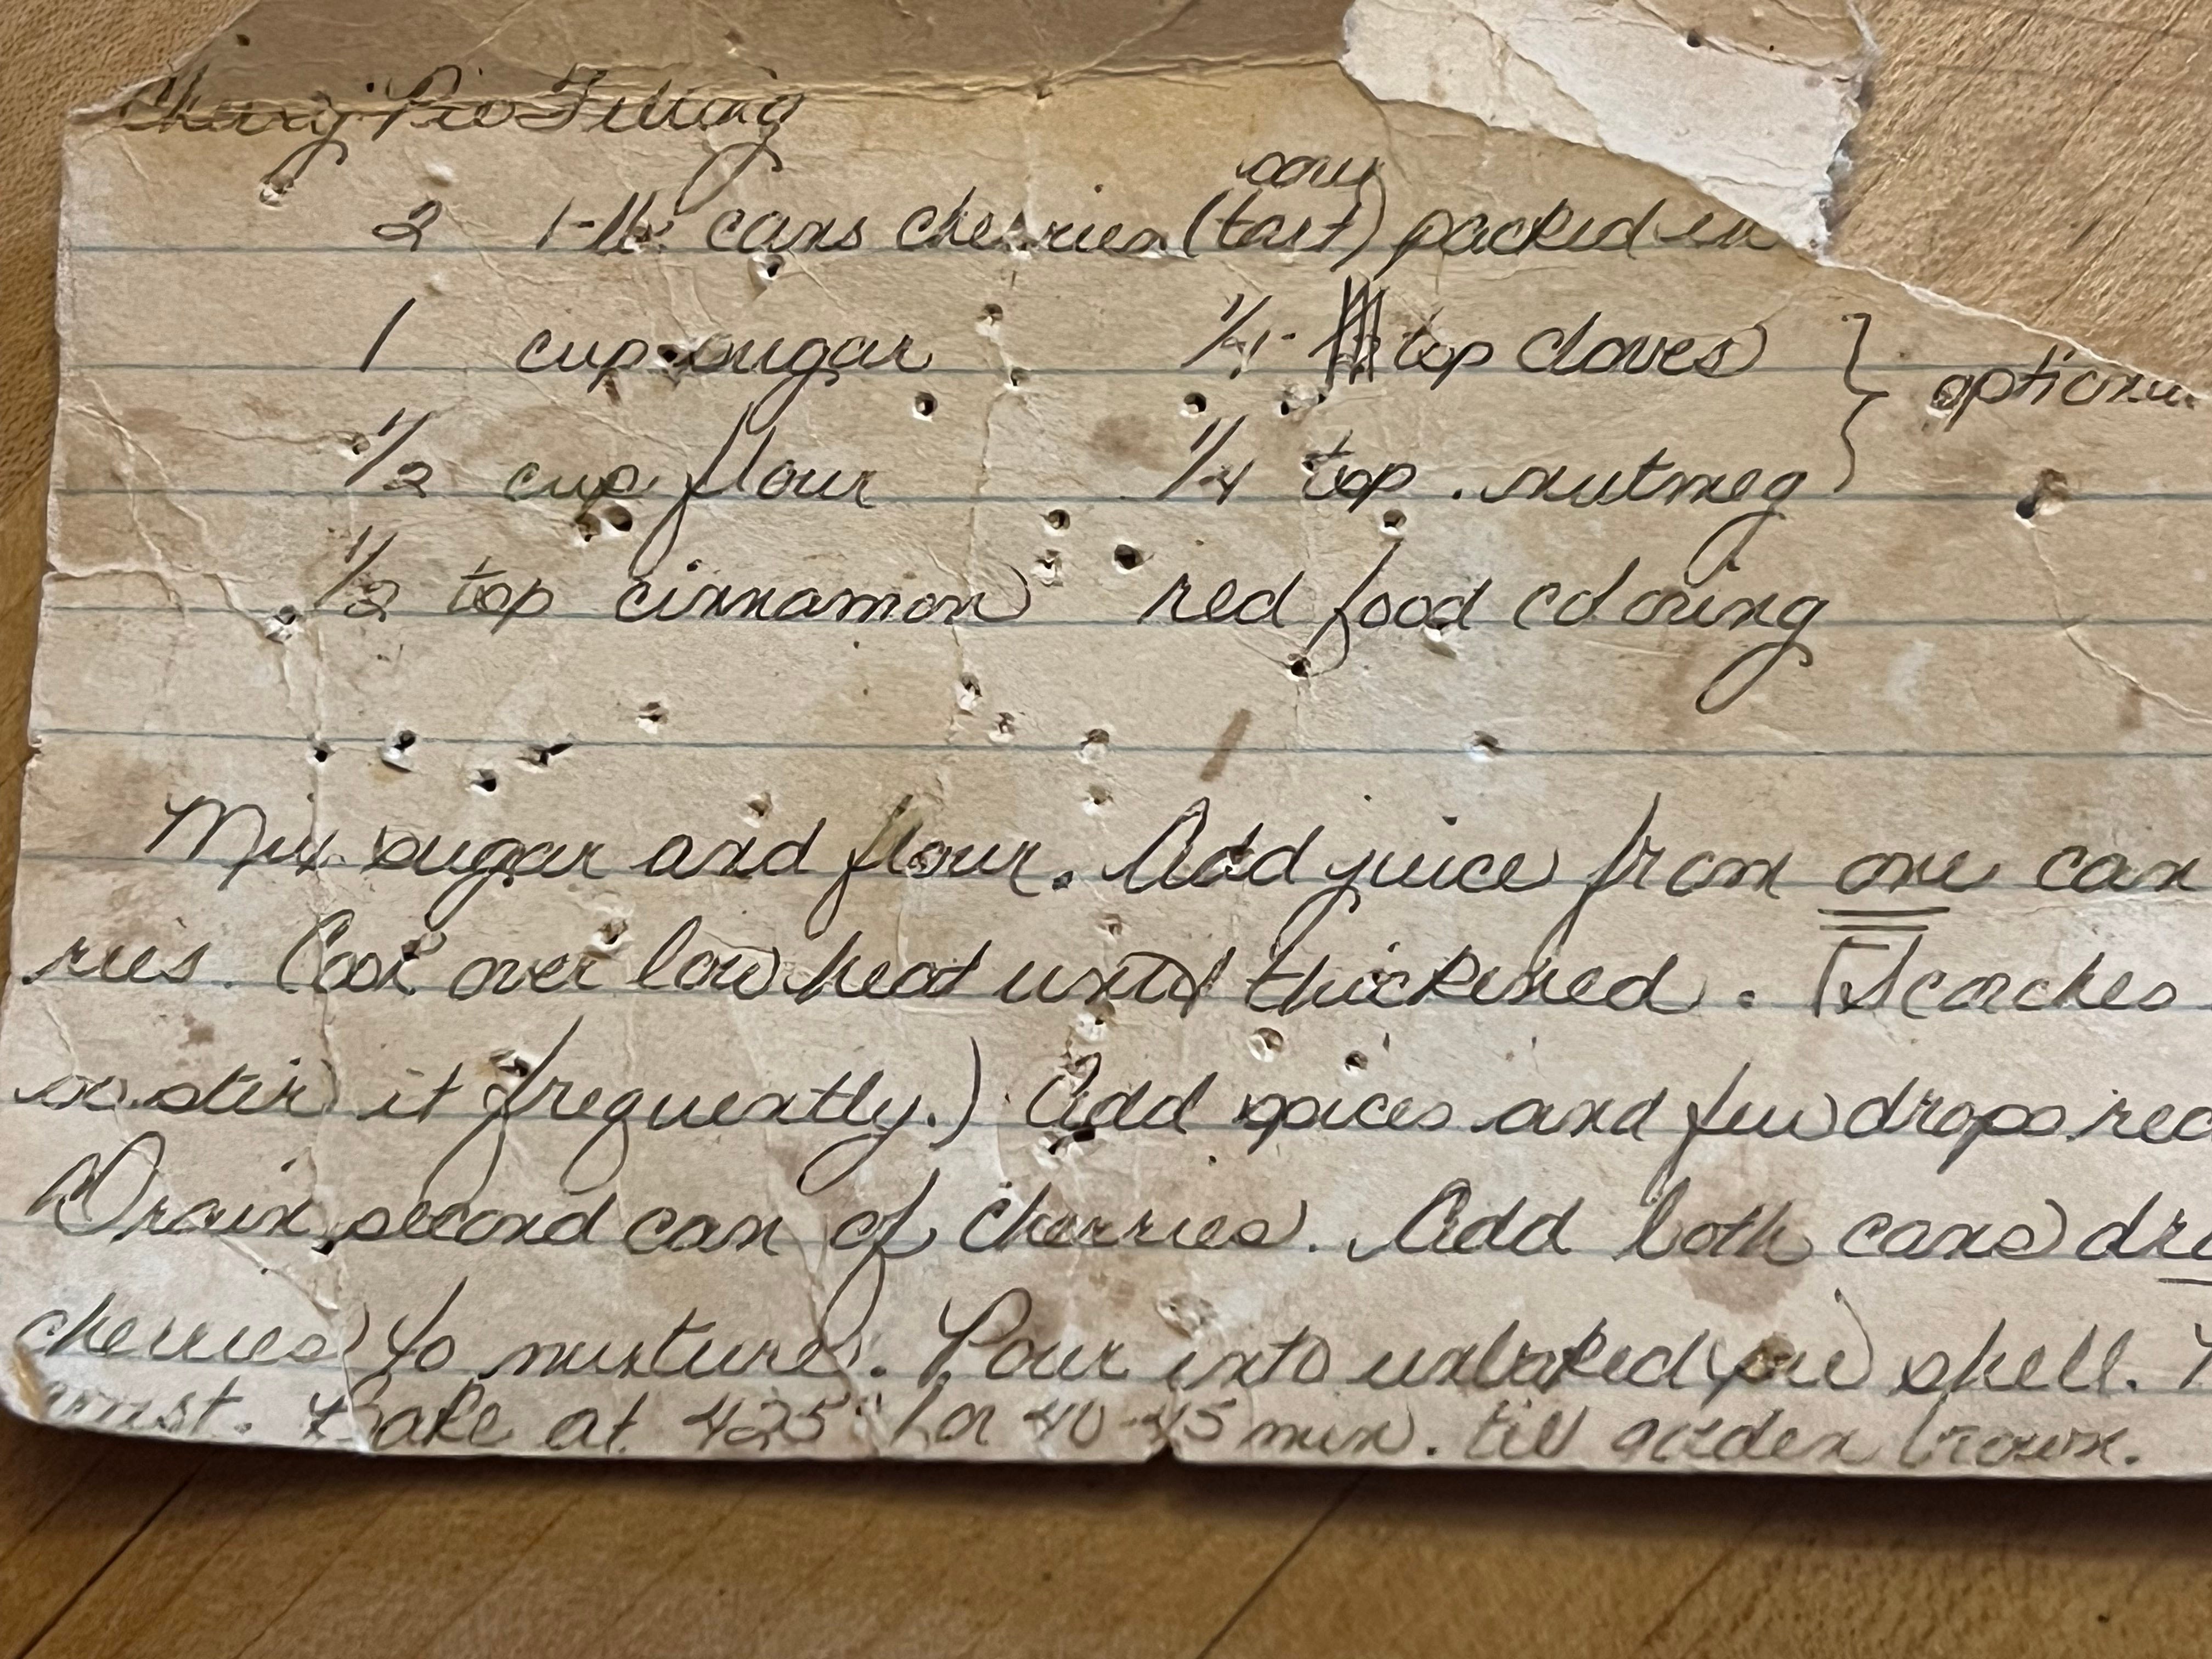 Cherry Pie Filling
sour
2 1-lb. cans cherries (tart) packed in
1 cup sugar 1/4 tsp cloves } optional
1/2 cup flour 1/4 tsp. nutmeg
1/2 tsp cinnamon red food coloring
Mix sugar and flour. Add juice from one can
ries. Cook over low heat until thickened. (Scorches
so stir it frequently.) Add spices and few drops red
Drain second can of cherries. Add both cans dr
cherries to mixture. Pour into unbaked pie shell.
crust. Bake at 425° for 40-45 min. till golden brown.